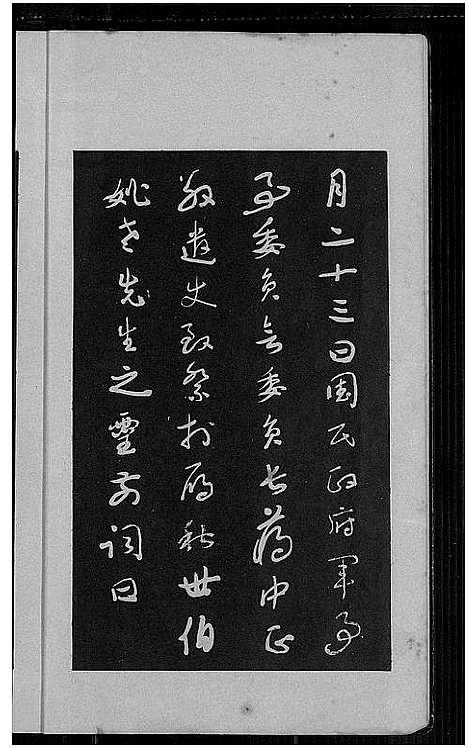 月二十三日國民政府軍事
委員會委員長蔣中正
敬遣史致祭於世伯
姚老先生之靈前詞曰